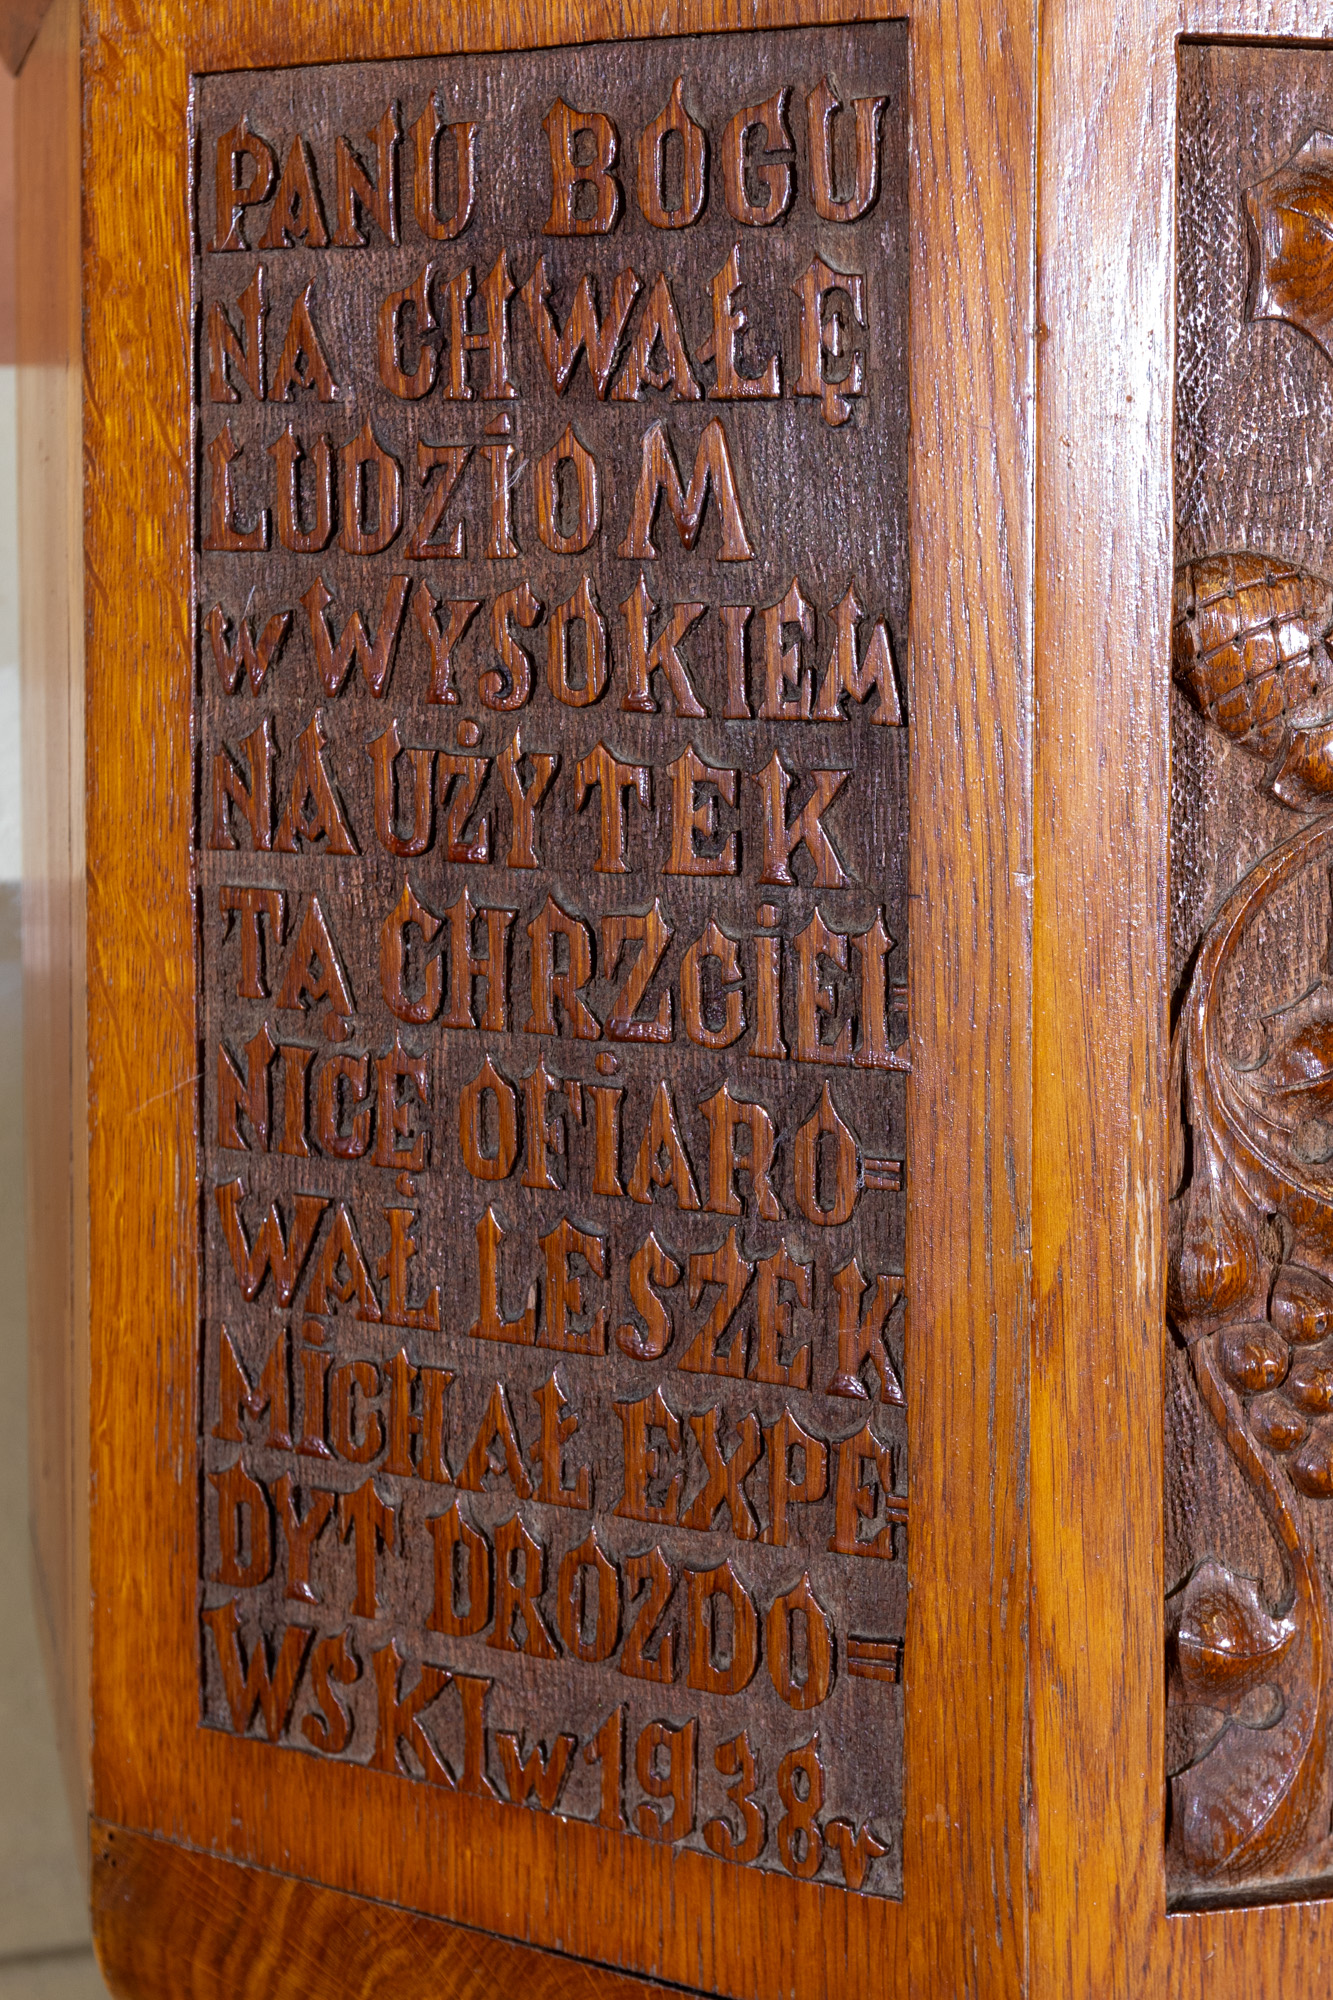 PANU BOGU
NA CHWAŁĘ
LUDZIOM
w WYSOKIEM
NA UŻYTEK
TĄ CHRZCIEL=
NICĘ OFIARO=
WAŁ LESZEK
MICHAŁ EXPE=
DYT DROZDO=
WSKI w 1938 r